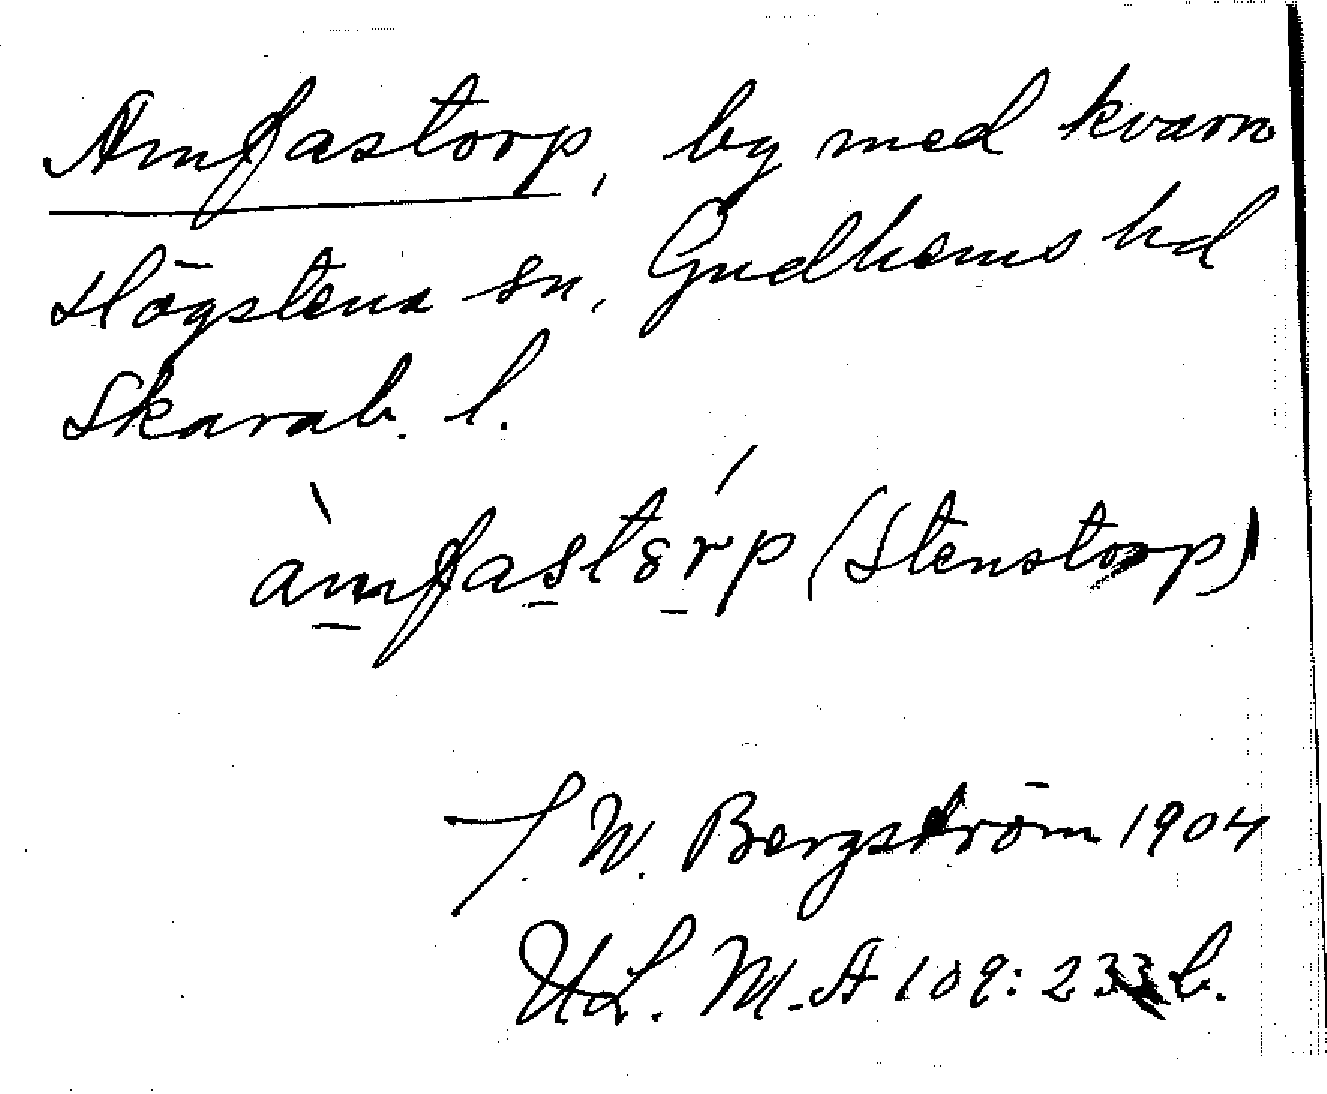 Amfastorp, by med kvarn
Högstena sn, Gudhems hd
Skarab. l.
àmfastórp (Stenstorp)
J. W. Bergström 1904
U. L. M. A 109: 233 b.